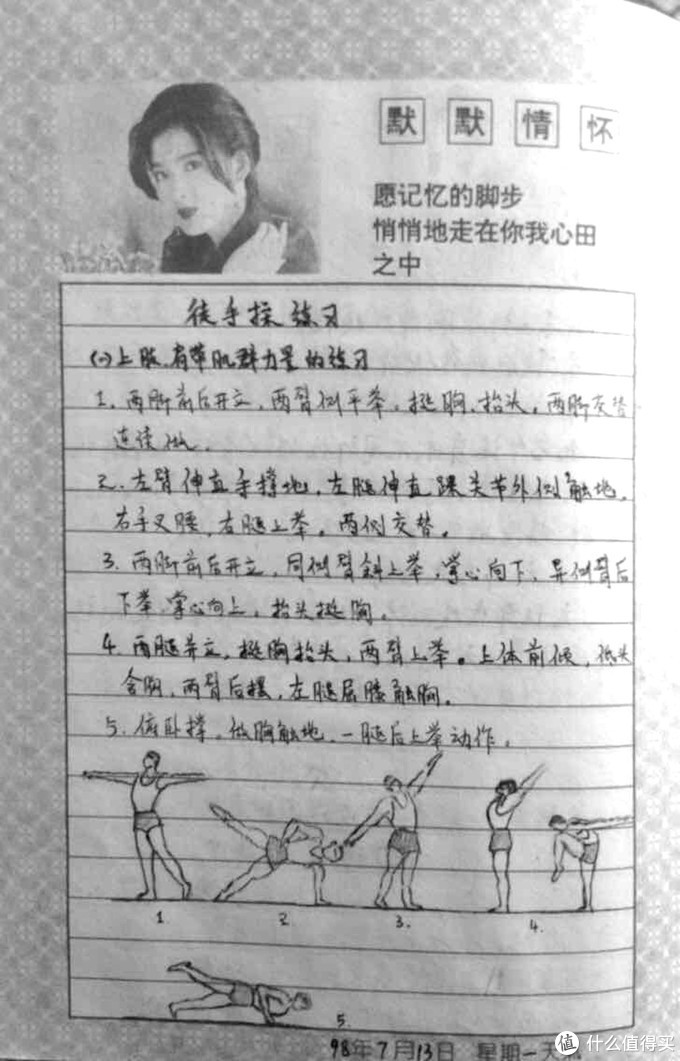 默默情怀
愿记忆的脚步
悄悄地走在你我心田
之中
徒手操练习
(一)上肢、肩带肌群力量的练习
1. 两脚前后开立，两臂侧平举，挺胸，抬头，两脚交替
连续做。
2. 左臂伸直手撑地，左腿伸直踝关节外侧触地，
右手叉腰，右腿上举。两侧交替。
3. 两脚前后开立，同侧臂斜上举，掌心向下，异侧臂后
下举，掌心向上，抬头挺胸。
4. 两腿并立，挺胸抬头，两臂上举。上体前倾，低头
含胸，两臂后摆，左腿屈膝触胸。
5. 俯卧撑，做胸触地，一腿后上举动作。
1 2 3. 4.
5
98年7月13日 星期一 天
值 什么值得买